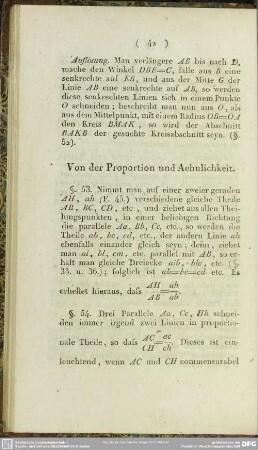 ( 40 )
Auflösung. Man verlängere AB bis nach D,
mache den Winkel DBE=C, fälle aus B eine
senkrechte auf EB, und aus der Mitte G der
Linie AB eine senkrechte auf AB, so werden
diese senkrechten Linien sich in einem Punkte
O schneiden; beschreibt man nun aus O, als
aus dem Mittelpunkt, mit einem Radius OB=OA
den Kreis BMAK, so wird der Abschnitt
BAKB der gesuchte Kreisabschnitt seyn. (§.
52).
Von der Proportion und Aehnlichkeit.
§. 53. Nimmt man auf einer zweier geraden
AH, ah (F. 45.) verschiedene gleiche Theile
AB, BC, CD, etc., und ziehet aus allen Thei-
lungspunkten, in einer beliebigen Richtung
die parallele Aa, Bb, Cc, etc., so werden die
Theile ab, bc, cd, etc., der andern Linie ah
ebenfalls einander gleich seyn; denn, ziehet
man al, bl, cm, etc. parallel mit AB, so er-
hält man gleiche Dreiecke etc. (§.
33. u. 36.); folglich ist ab=bc=cd etc. Es
erhellet hieraus, daſs AH/AB = ah/ab
§. 54. Drei Parallele Aa, Cc, Hh schnei-
den immer irgend zwei Linien in proportio-
nale Theile, so daſs AC/CH = ac/ch. Dieses ist ein-
leuchtend, wenn AC und CH commensurabel